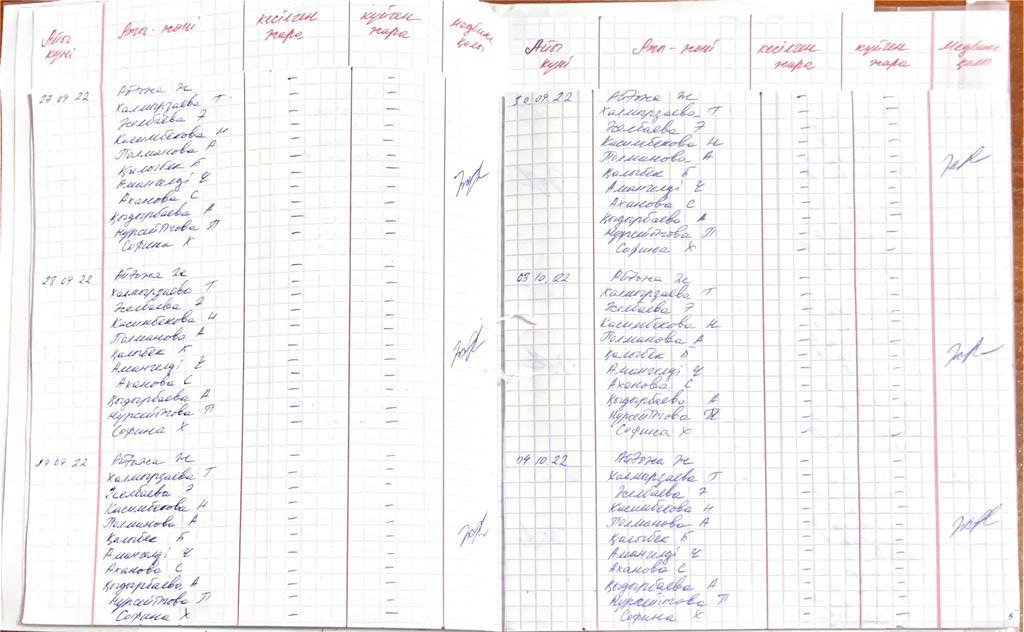 Айы күні Аты-жөні кесілген жара күйген жара Медбике қолы
27 09 22 Айтожа Ж — —
Халмырзаева Т — —
Желбаева Э — —
Касимбекова Н — —
Полманова А — —
Қалыбек Б — —
Амангелді Ч — —
Аханова С — —
Қыдырбаева А — —
Нурсейтова П — —
Софина Х — —
28 09 22 Айтожа Ж — —
Халмырзаева Т — —
Желбаева Э — —
Касимбекова Н — —
Полманова А — —
Қалыбек Б — —
Амангелді Ч — —
Аханова С — —
Қыдырбаева А — —
Нурсейтова П — —
Софина Х — —
29 09 22 Айтожа Ж — —
Халмырзаева Т — —
Желбаева Э — —
Касимбекова Н — —
Полманова А — —
Қалыбек Б — —
Амангелді Ч — —
Аханова С — —
Қыдырбаева А — —
Нурсейтова П — —
Софина Х — —
Айы күні Аты-жөні кесілген жара күйген жара Медбике қолы
30 09 22 Айтожа Ж — —
Халмырзаева Т — —
Желбаева Э — —
Касимбекова Н — —
Полманова А — —
Қалыбек Б — —
Амангелді Ч — —
Аханова С — —
Қыдырбаева А — —
Нурсейтова П — —
Софина Х — —
03 10 22 Айтожа Ж — —
Халмырзаева Т — —
Желбаева Э — —
Касимбекова Н — —
Полманова А — —
Қалыбек Б — —
Амангелді Ч — —
Аханова С — —
Қыдырбаева А — —
Нурсейтова П — —
Софина Х — —
04 10 22 Айтожа Ж — —
Халмырзаева Т — —
Желбаева Э — —
Касимбекова Н — —
Полманова А — —
Қалыбек Б — —
Амангелді Ч — —
Аханова С — —
Қыдырбаева А — —
Нурсейтова П — —
Софина Х — —